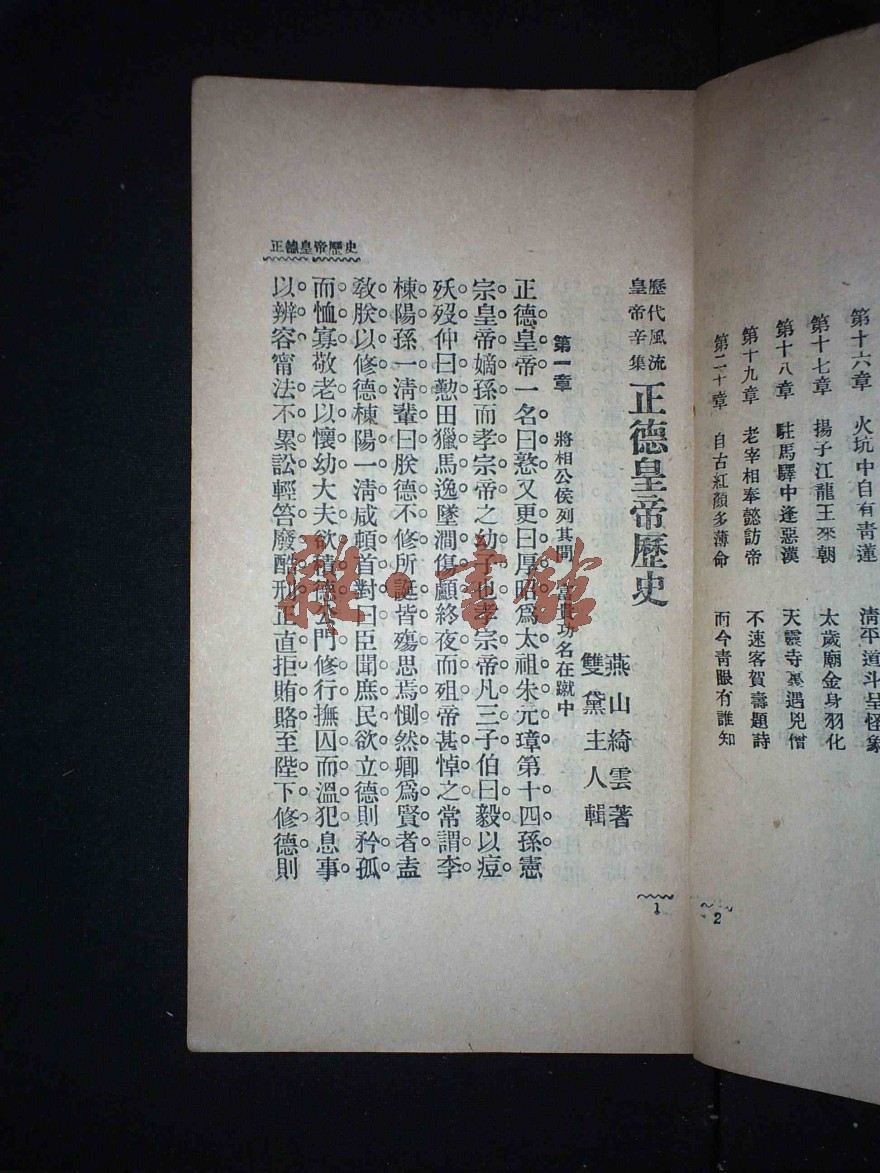 第十六章　火坑中自有青蓮　清平道斗呈怪象
第十七章　揚子江龍王來朝　太歲廟金身羽化
第十八章　駐馬驛中逢惡漢　天靈寺裏遇兇僧
第十九章　老宰相奉懿訪帝　不速客賀壽題詩
第二十章　自古紅顏多薄命　而今青眼有誰知
2
歷代風流
皇帝辛集
正德皇帝歷史
燕山綺雲著
雙黛主人輯
第一章　將相公侯列其間　富貴功名在蹴中
正德皇帝一名曰憝又更曰厚昭爲太祖朱元璋第十四孫憲
宗皇帝嫡孫而孝宗帝之幼子也孝宗帝凡三子伯曰毅以痘
殀歿仲曰懃田獵馬逸墜澗傷顱終夜而殂帝甚悼之常謂李
棟陽孫一清輩曰朕德不修所誕皆殤思焉惻然卿爲賢者盍
敎朕以修德棟陽一清咸頓首對曰臣聞庶民欲立德則矜孤
而恤寡敬老以懷幼大夫欲積德公門修行撫囚而溫犯息事
以辨容甯法不累訟輕笞廢酷刑正直拒賄賂至陛下修德則
正德皇帝歷史
1
雜·書館